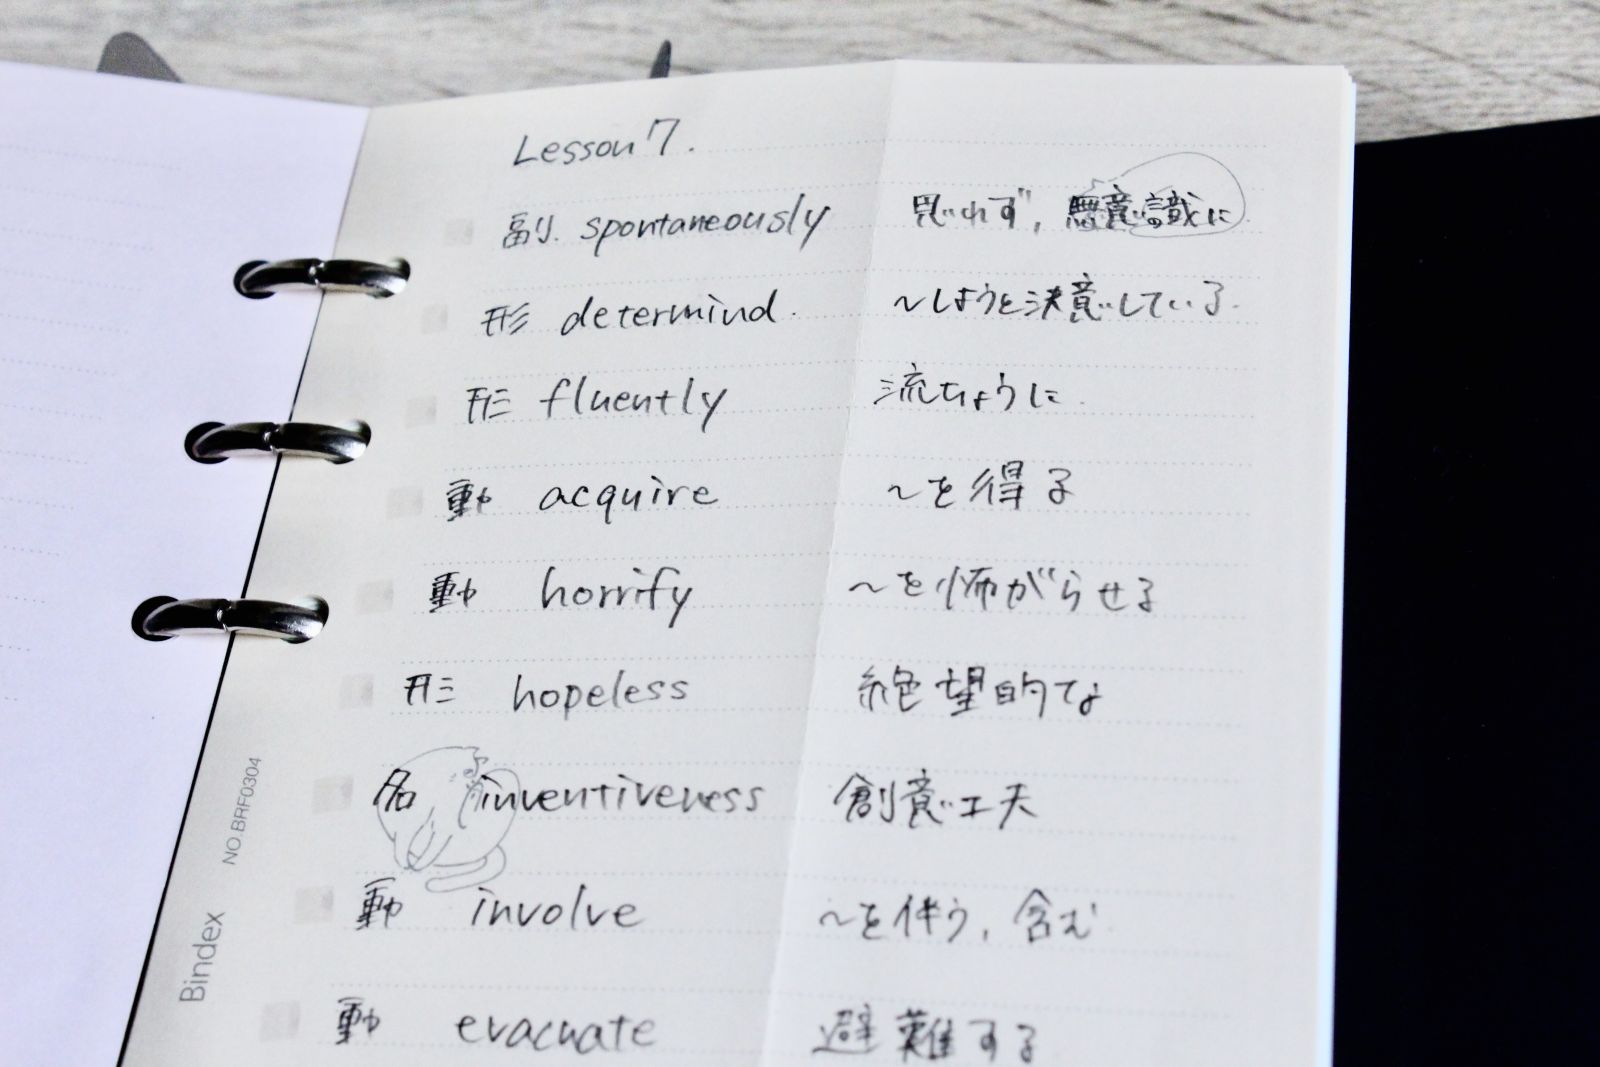 Lesson 7.
副. spontaneously 思わず, 無意識に
形 determind. ～しようと決意している.
形 fluently 流ちょうに.
動 acquire ～を得る
動 horrify ～を怖がらせる
形 hopeless 絶望的な
名 inventiveness 創意工夫
動 involve ～を伴う, 含む
動 evacuate 避難する
Bindex NO.BRF0304